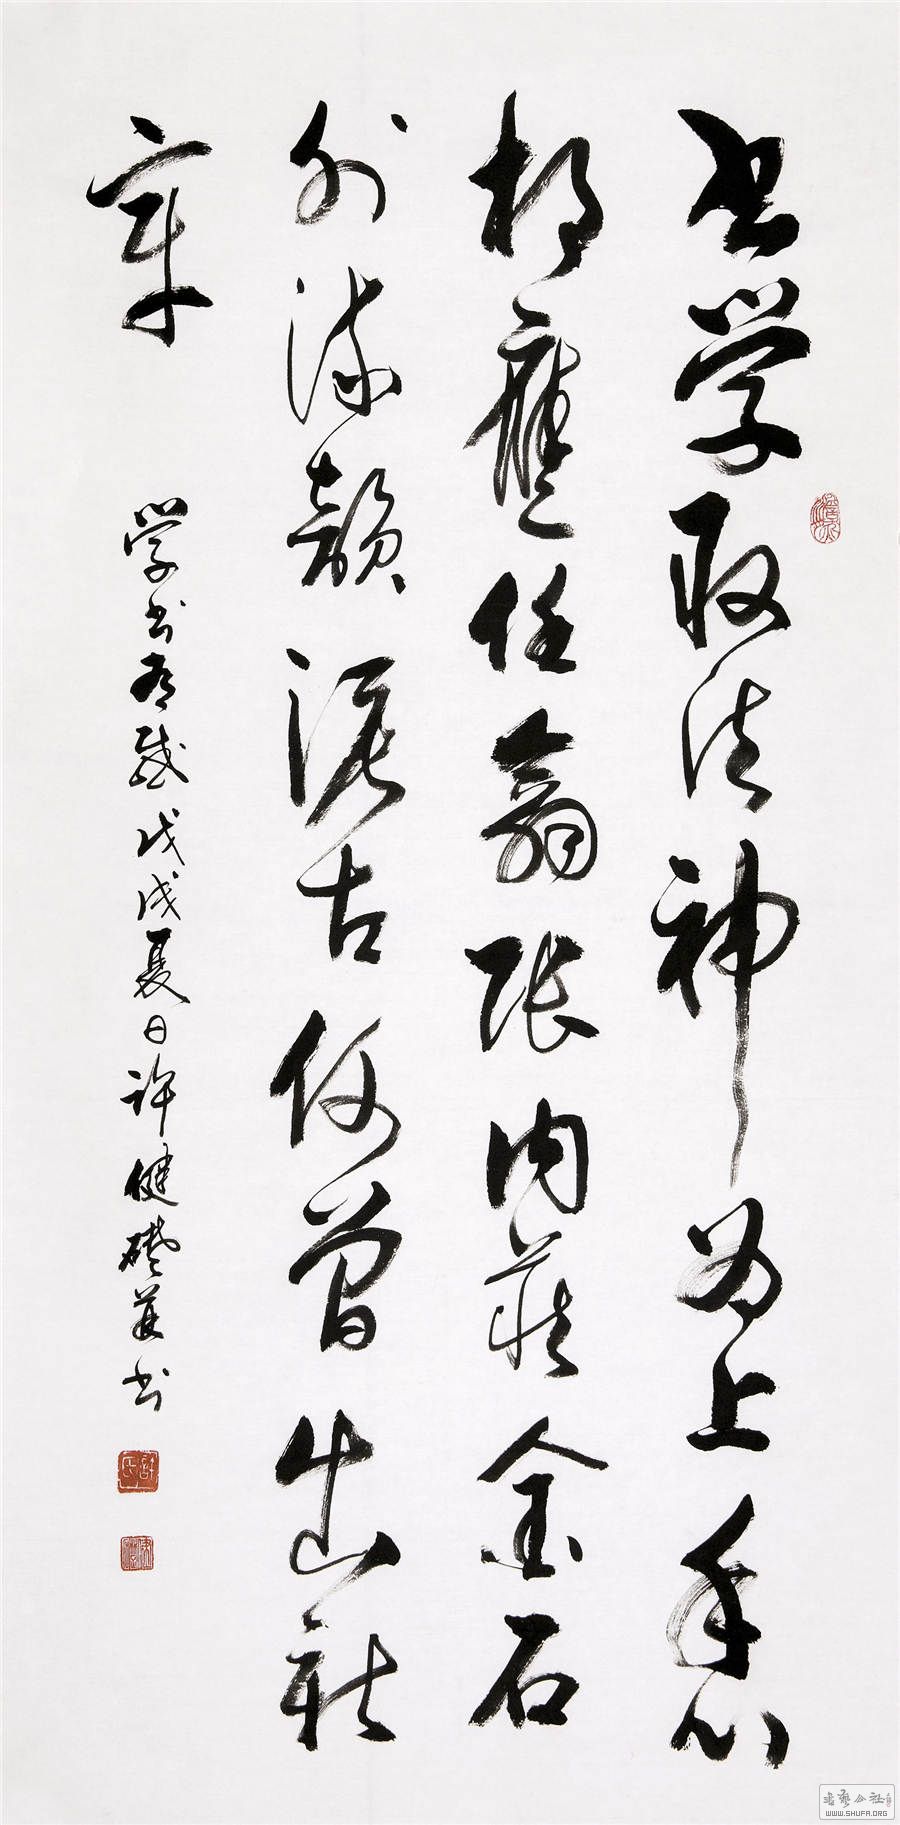 书学取法神为上手心
相应任翕张内蕴金石
外流韵泥古何曾出新
章
学书有感戊戌夏日许健础并书
書藝公社
WWW.SHUFA.ORG